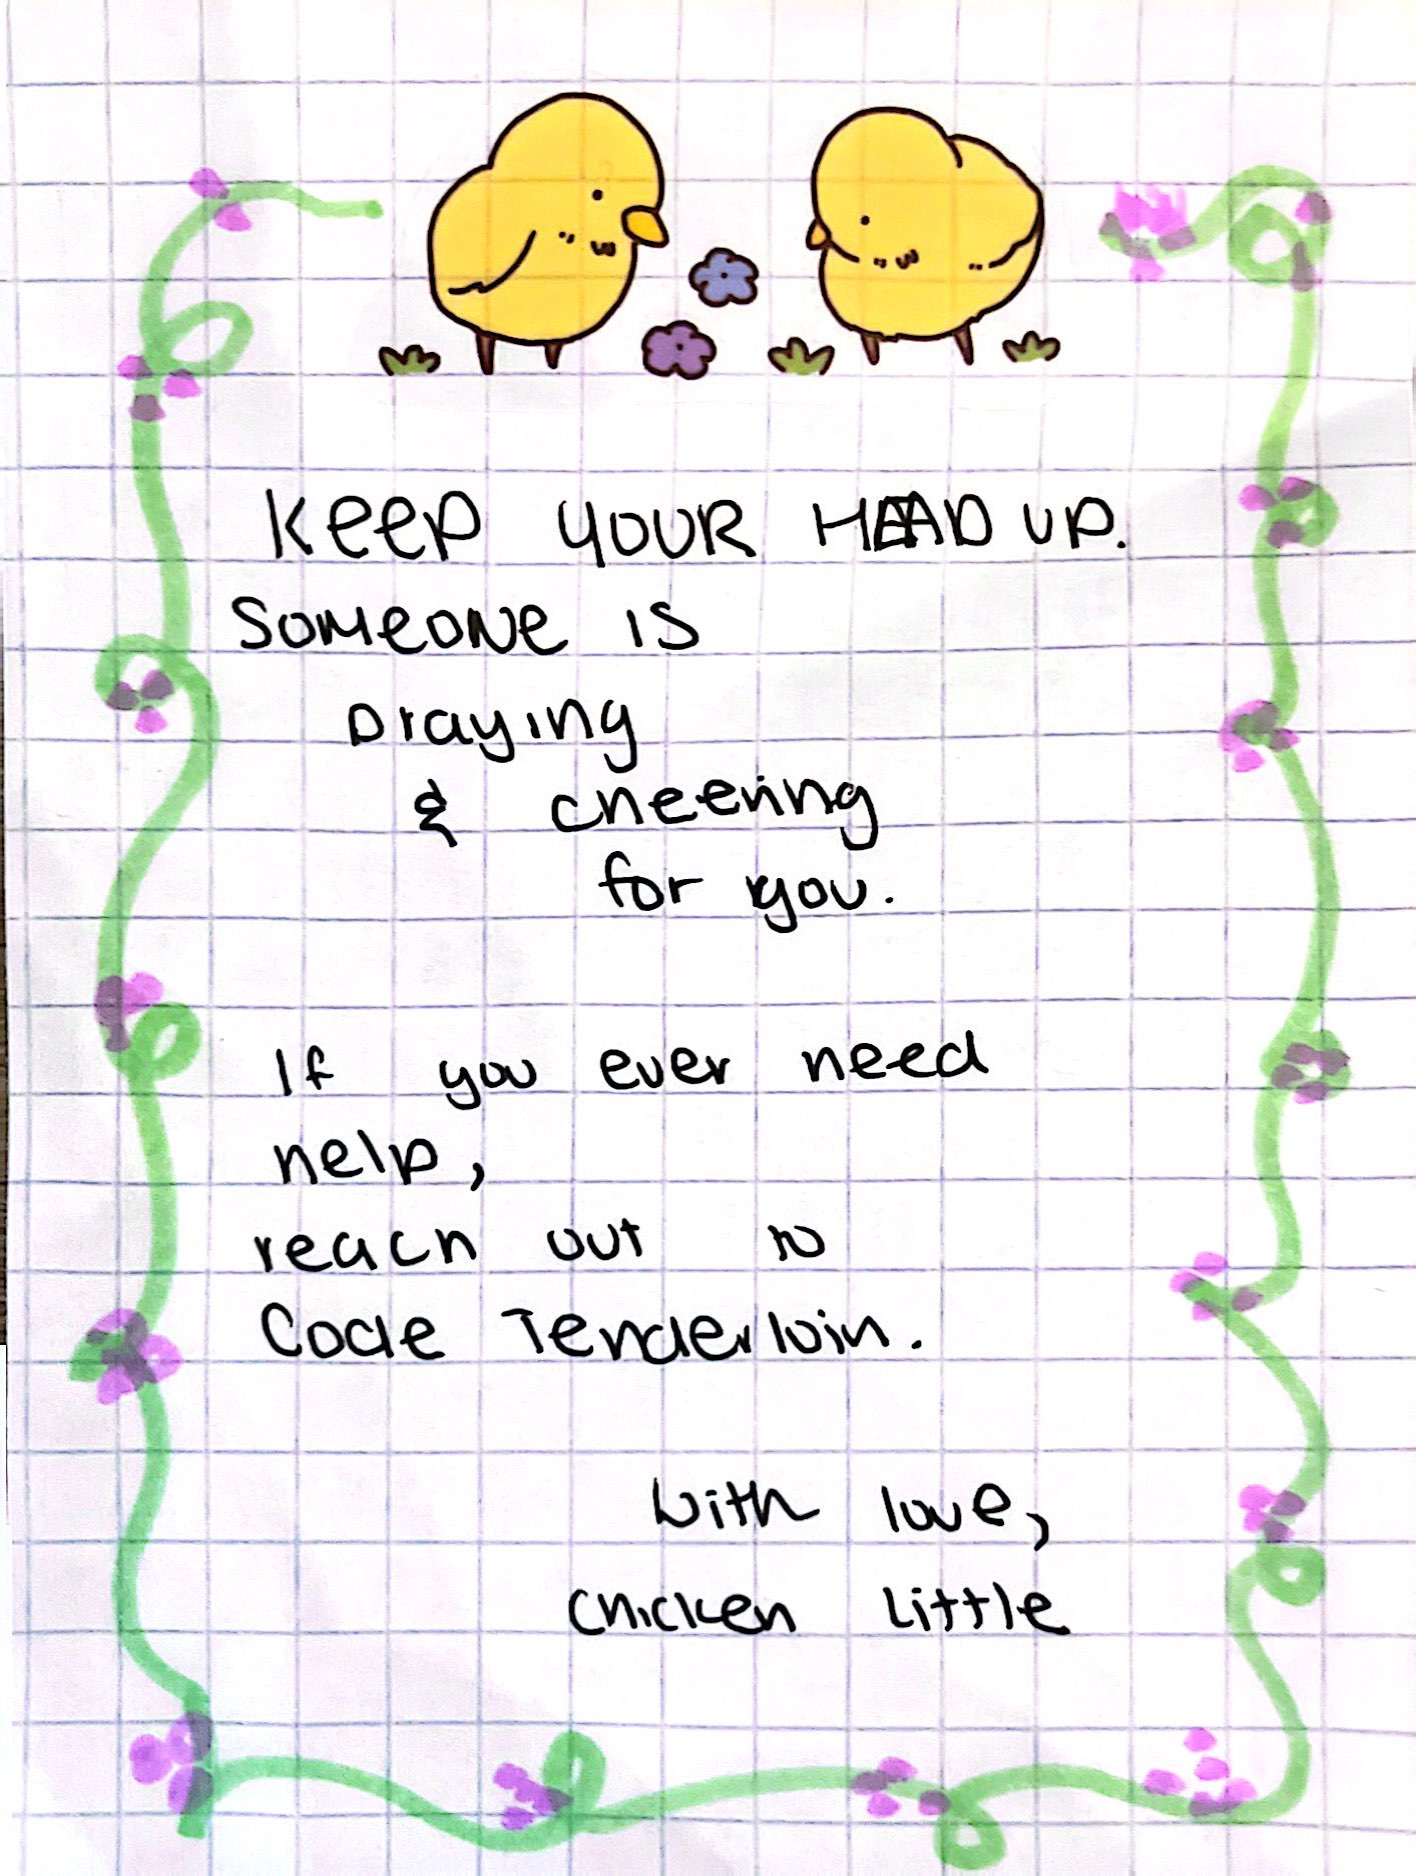 KEEP YOUR HEAD UP.
SOMEONE IS
praying
& cheering
for you.
If you ever need
help,
reach out to
Code Tenderloin.
With love,
Chicken Little